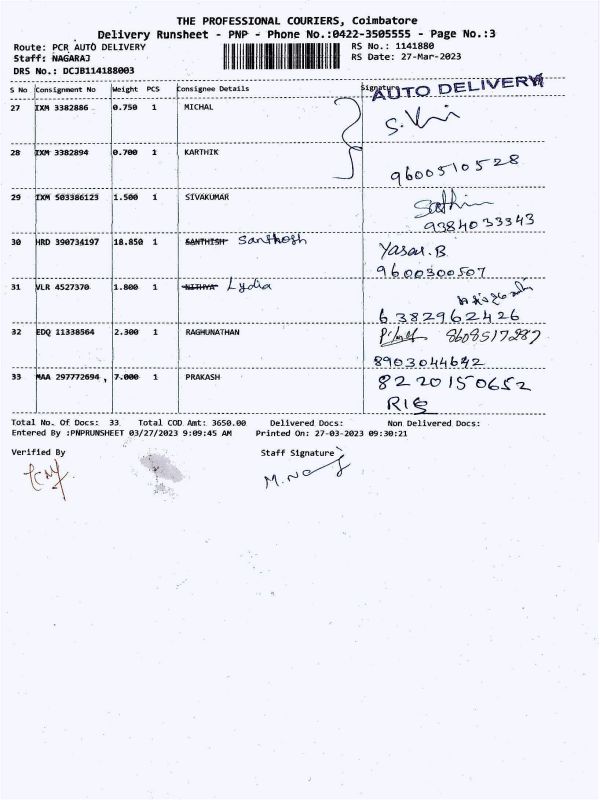 THE PROFESSIONAL COURIERS, Coimbatore
Delivery Runsheet - PNP - Phone No.:0422-3505555 - Page No.:3
Route: PCR AUTO DELIVERY RS No.: 1141880
Staff: NAGARAJ RS Date: 27-Mar-2023
DRS No.: DCJB114188003
S No Consignment No Weight PCS Consignee Details Signature
AUTO DELIVERY
27 IXM 3382886 0.750 1 MICHAL
28 IXM 3382894 0.700 1 KARTHIK 9600510528
29 IXM 503386123 1.500 1 SIVAKUMAR
9384033343
30 HRD 390734197 18.850 1 SANTHISH Santhosh Yasar.B
9600300507
31 VLR 4527370 1.800 1 NITHYA Lydia
6382962426
32 EDQ 11338564 2.300 1 RAGHUNATHAN 8608517287
8903044642
33 MAA 297772694 , 7.000 1 PRAKASH 8220150652
Total No. Of Docs: 33 Total COD Amt: 3650.00 Delivered Docs: Non Delivered Docs:
Entered By :PNPRUNSHEET 03/27/2023 9:09:45 AM Printed On: 27-03-2023 09:30:21
Verified By Staff Signature